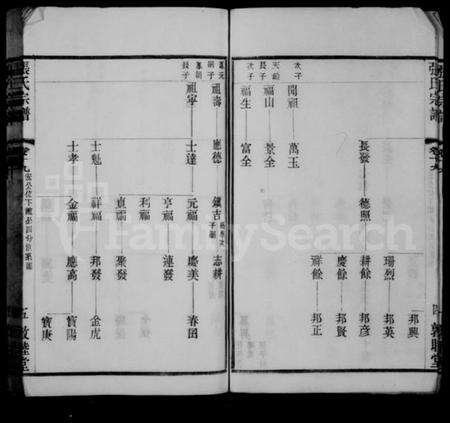 張氏宗譜
邦興
瑞烈 邦英
長發 德照 耕餘 邦彦
慶餘 邦賢
邦正
次子 開祖 萬玉
天給 長子 福山 景全
次子 福生 富全
敦睦堂
祖壽 應德 志耕
長子 祖寧 士達 元福 慶美 春囝
亨福 連發
利福
貞福 聚發
士魁 祥福 邦發 金虎
士孝 金福 應高 寶陽
寶庚
張氏宗譜
五 敦睦堂
FamilySearch